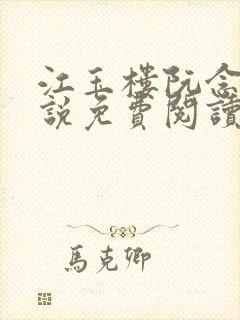 江玉樓阮念
說免費閱讀
馬克卿